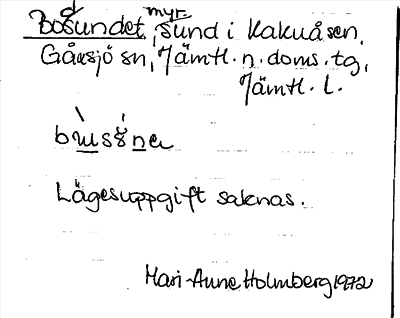 Bosundet, myr, sund i Kakuåsen,
Gåxsjö sn, Jämtl. n. doms. tg,
Jämtl. L.
Lägesuppgift saknas.
Mari-Anne Holmberg 1972